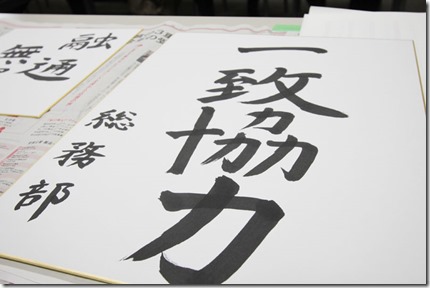 一致協力
総務部
融通
無